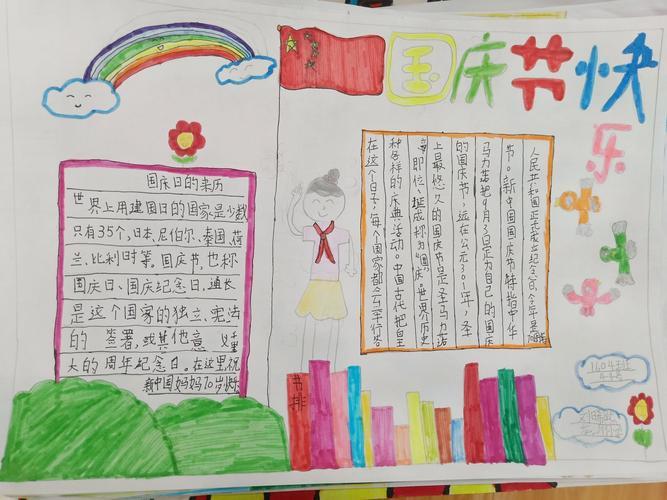 国庆节快乐
国庆日的来历
世界上用建国日的国家是少数
只有35个,日本、尼伯尔、泰国、荷
兰、比利时等。国庆节,也称
国庆日、国庆纪念日,通长
是这个国家的独立、宪法
的 签署,或其他意 义重
大的周年纪念日。在这里祝
新中国妈妈70岁
在这个日子,每个国家都会举行各
种各样的庆典活动。中国古代把皇
即位、诞 称为"国庆"世界历史
上最悠久的国庆节是圣马力诺
的国庆节,远在公元301年,圣
马力诺把9月3日定为自己的国庆
节。新中国国庆节特指中华
人民共和国正式成立纪念日今年是
书排
1604班